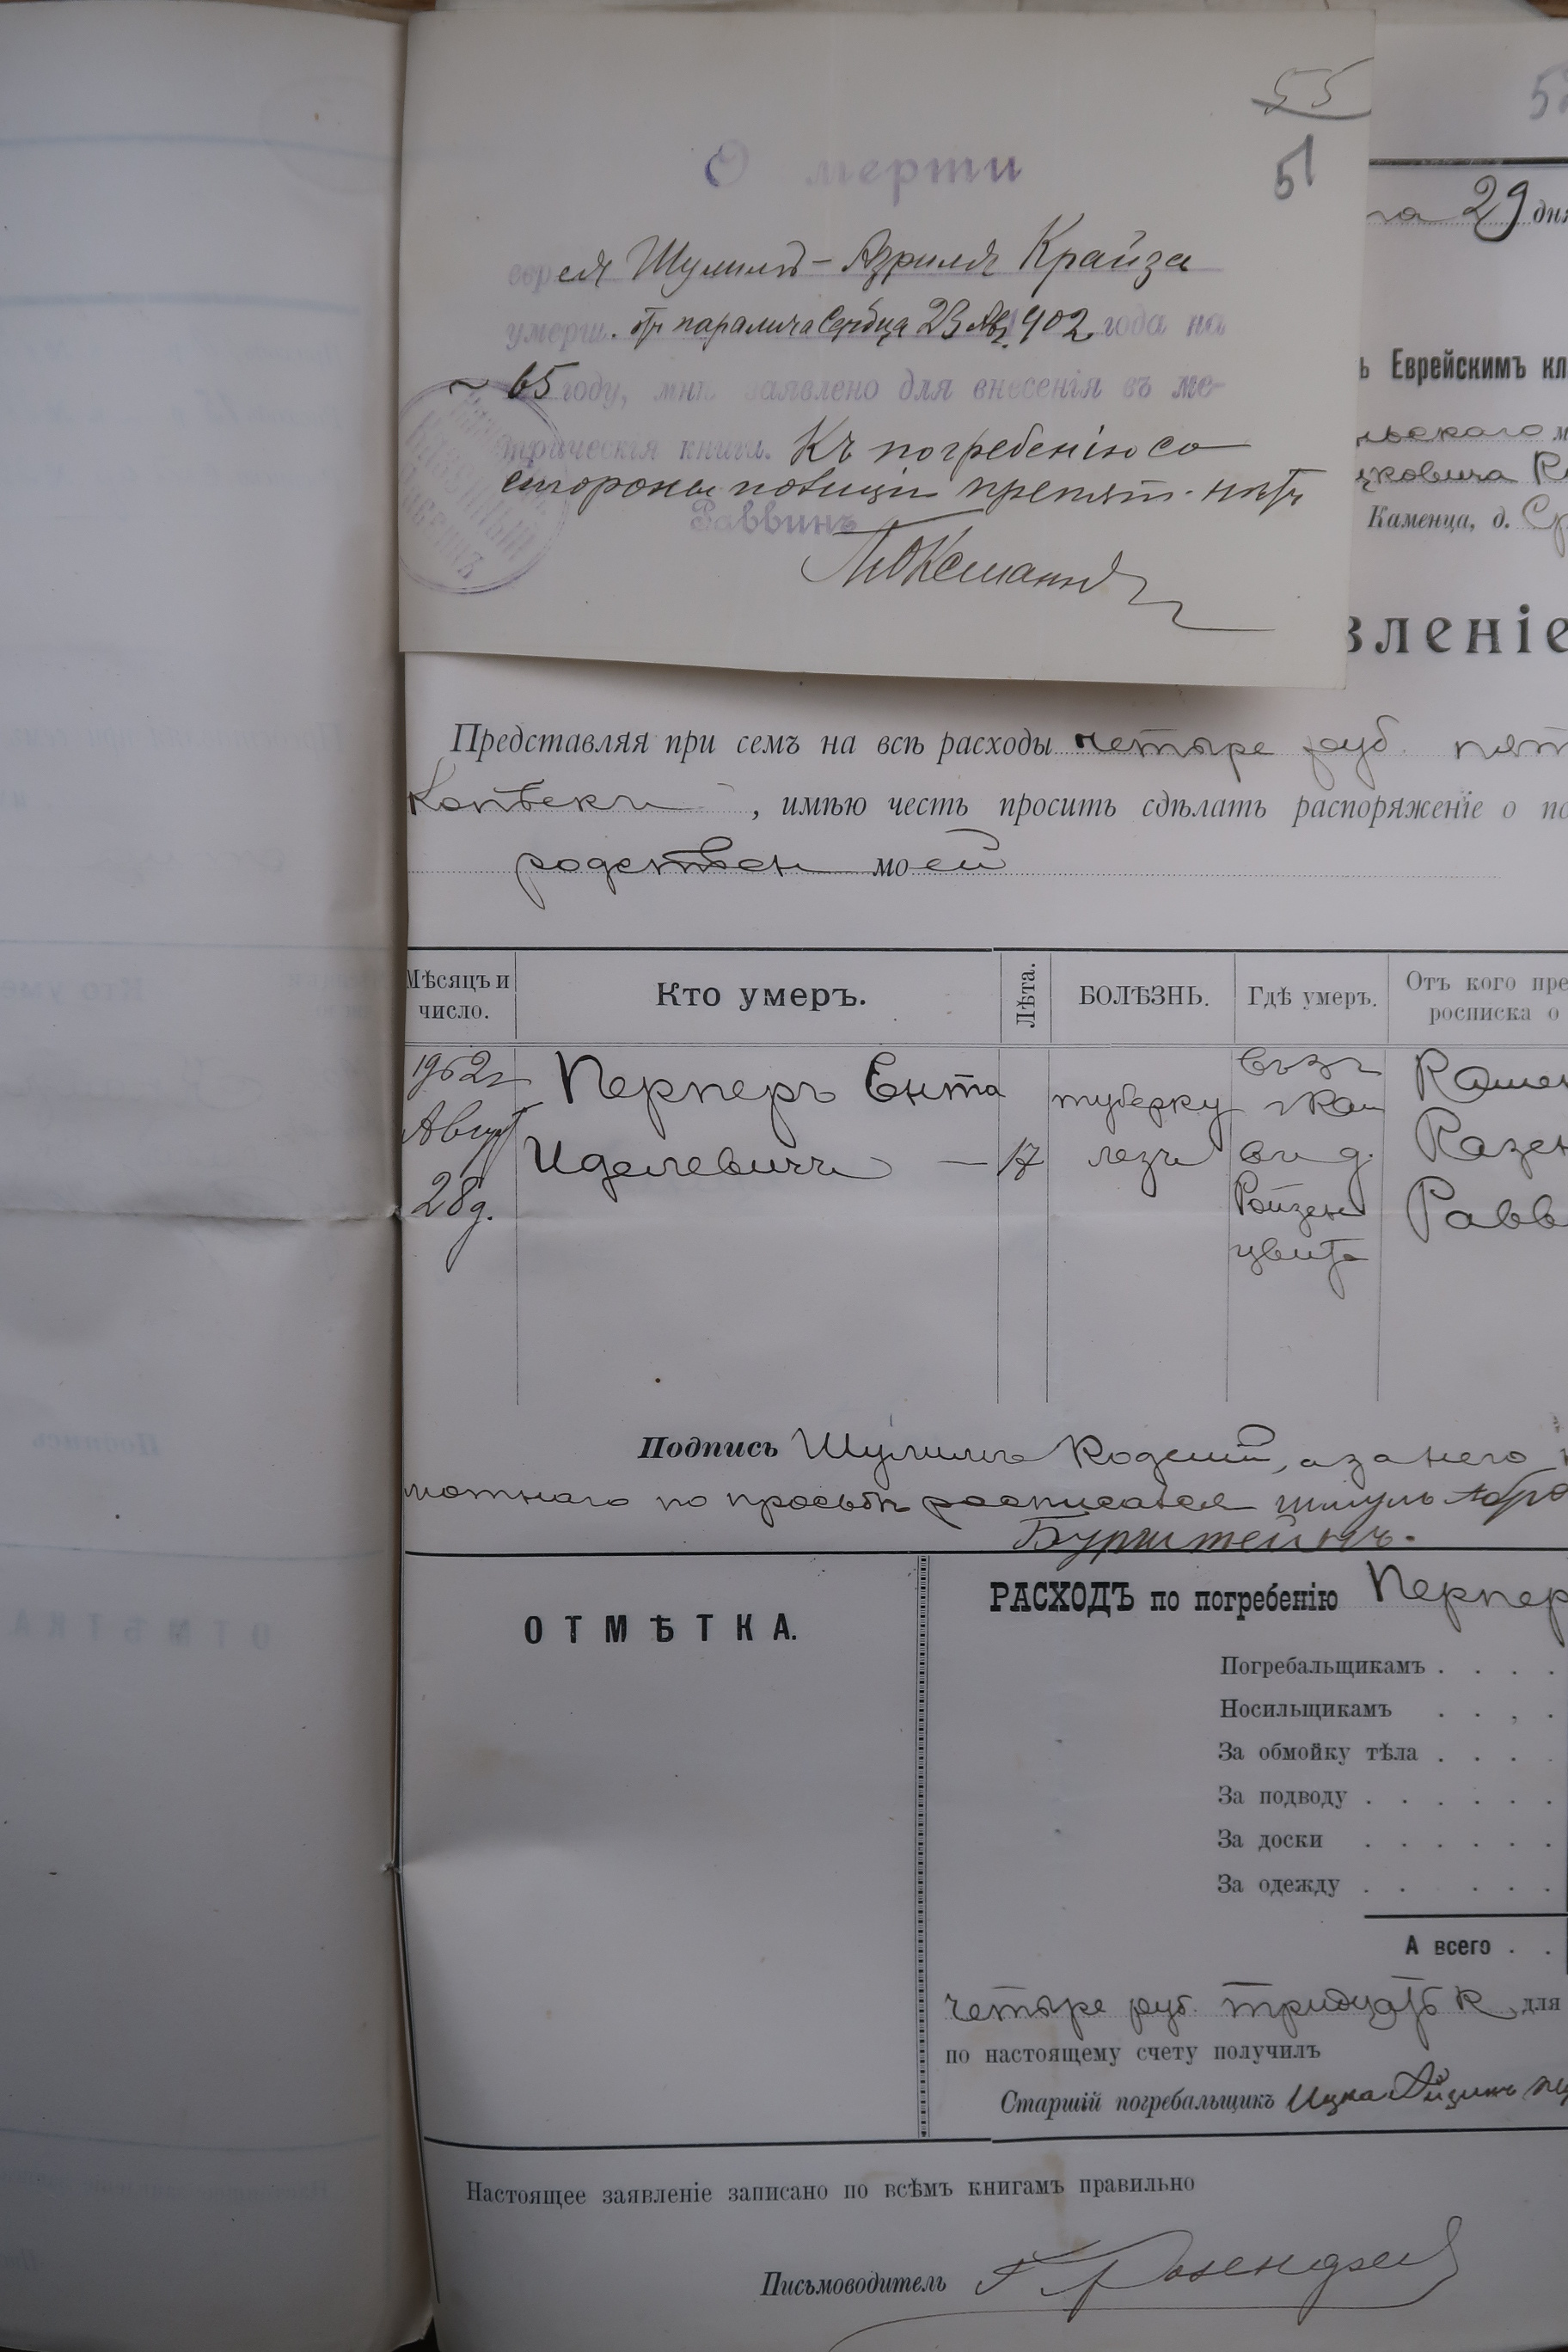 55
51
О мерти
еврея Шулимъ-Азриля Крайза
умерш. отъ паралича сердца 23 Авг. 1902 года на
65 году, мнѣ заявлено для внесенія въ ме-
трическія книги. Къ погребенію со
стороны полиціи препят. нѣтъ
Раввинъ
29 дня
ъ Еврейскимъ кл
льскаго м
цковича
Каменца, д. Ср
вленіе
Представляя при семъ на всѣ расходы четыре руб. пят
копѣекъ, имѣю честь просить сдѣлать распоряженіе о по
родствен моей
Мѣсяцъ и число.
Кто умеръ.
Лѣта.
БОЛѢЗНЬ.
Гдѣ умеръ.
Отъ кого пре
росписка о
1902г
Август
28д.
Перперъ Ента
Иделевичъ — 17
туберку
лезъ
въ г.
Кам
въ д.
Ройзен
цвитъ
Камен
Казен
Равв
Подпись Шулимъ Кодешъ, а за него
мотнаго по просьбѣ расписался Шмуль Абра
Бурштейнъ.
ОТМѢТКА.
РАСХОДЪ по погребенію Перпер
Погребальщикамъ . . . .
Носильщикамъ . . , .
За обмойку тѣла . . . .
За подводу . . . . . .
За доски . . . . . .
За одежду . . . . .
А всего . .
четыре руб. тридцать к, для
по настоящему счету получилъ
Старшій погребальщикъ Ицка Айзикъ
Настоящее заявленіе записано по всѣмъ книгамъ правильно
Письмоводитель